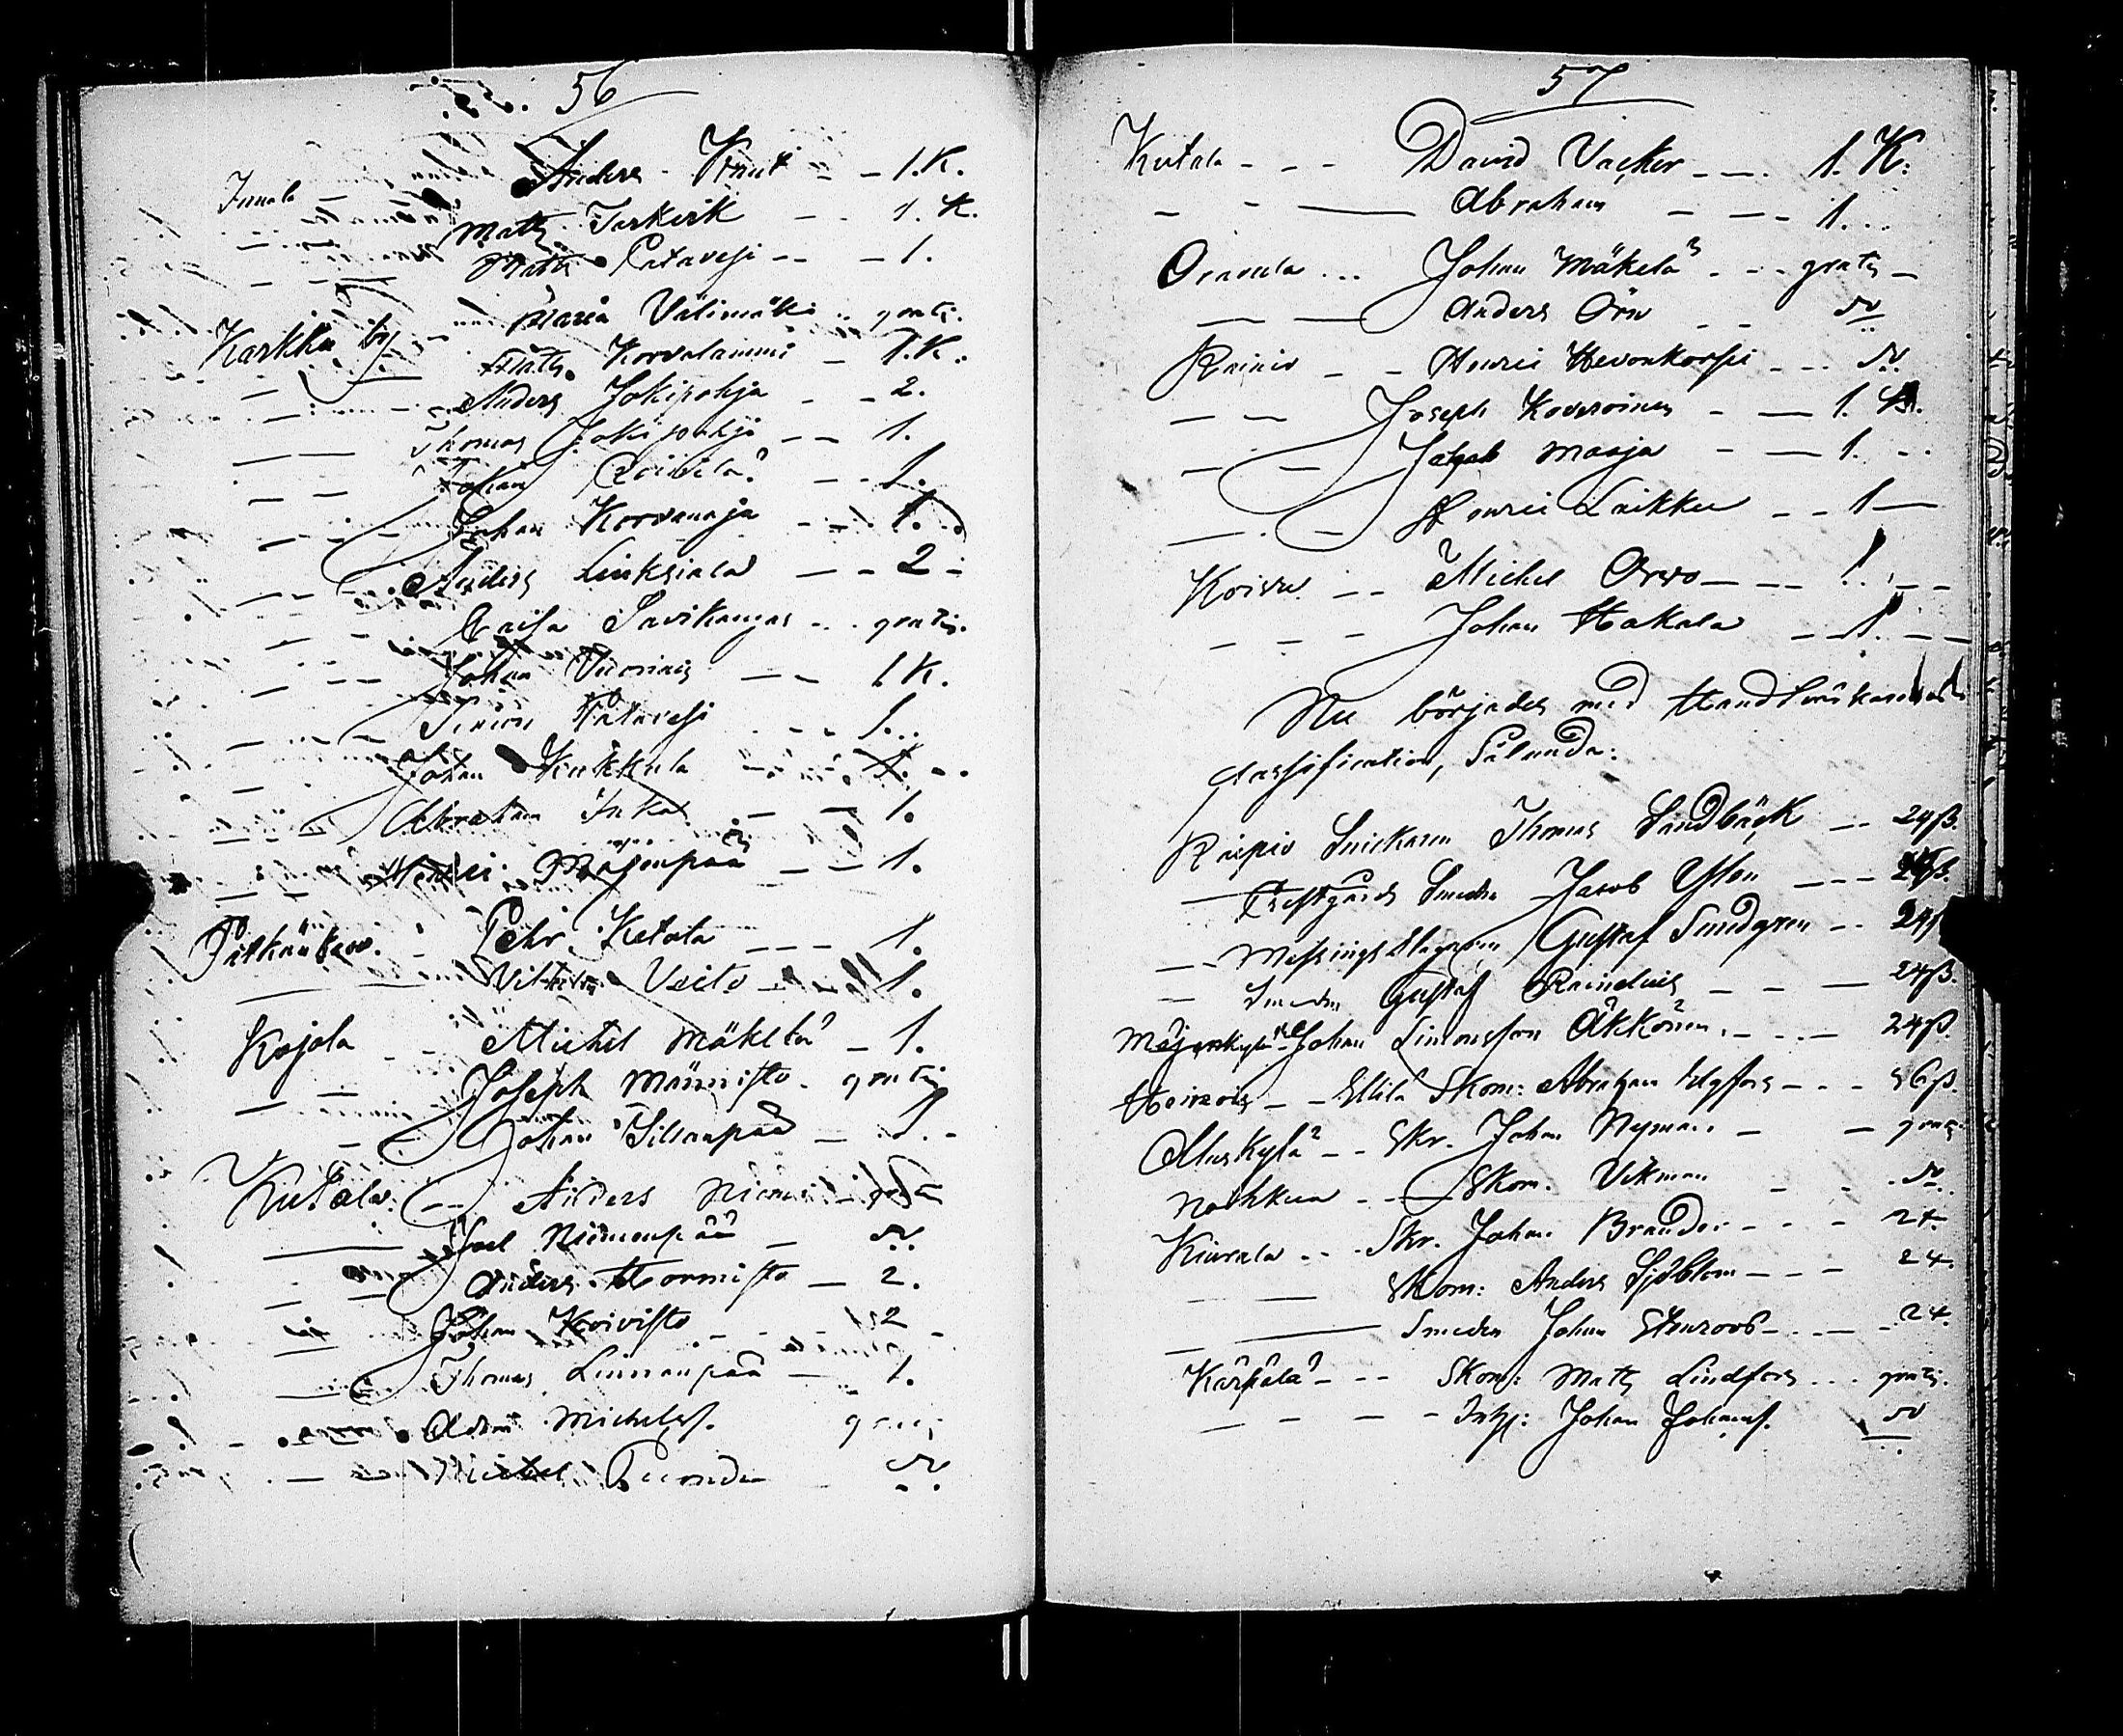 56
Innala - Anders Knut - - 1.K.
- - - Matts Terkerik - - 1. K.
- - - Matts Patavesi - - - 1.
Maria Välimäki .. gratis.
Karkku by - Matts Korvalammi - 1.K.
- - Anders Jokipohja - - 2.
- - Thomas Jokipohja - - 1.
- - Johan - - 1.
- - - Johan Korvanoja - - 1.
- - - Anders Linksiala - - 2 -
- - - Caisa Savikangas - . gratis.
- - - Johan Vuorinen - - 1 K.
- - - Simon Patavesi - - 1..
- - Johan Kukkula - - 1. ..
- - Abraham Inkal - - 1.
- - Henrici Majanpää - - 1.
Pitkänken. - Pehr Ketola - - - 1.
- - Veito - - 1.
Kojola - - Michel Mäkelä - 1.
- - Joseph Männistö - gratis
- - Johan Sillanpää - 1. -
Kutala - - Anders Niemi - gratis
- Joel Niemenpää - do.
- - Anders Hormisto - 2.
- Johan Koivisto - - - 2 -
- Thomas Linnanpää - 1.
- Adam Michelss. gratis
- - Michel - do.
57
Kutala - - - David Vacker - - . 1. K.
- - - Abraham - - - 1. . .
Oravala ... Johan Mäkelä . - - gratis -
- - Anders Örn - - do
Rainio - - Henrici Hevonkorpi - - - do.
- - Joseph Koveroinen - - 1. K.
- - Jacob Maaja - - 1. . .
- . - Henrici Laikku - - 1 -
Koivu - - Michel Orvo - - - 1. - -
- - - Johan Hakala - - 1. - -
Nu börjades med Handtvärkarnes
classification, Sålunda:
Raipio Snickaren Thomas Sandbäck - - 24 ß.
- Smeden Jacob - - - 24 ß.
- - Messingsslagaren Gustaf Sundgren - - 24 ß
- Smeden Gustaf Reindius - - - 24 ß.
Johan Simonsson Äkkönen. - . . - 24 ß.
Heinois - - Ellilä Skom: Abraham Elgfors - - - 36 ß.
Aluskylä - - Skr. Johan Nyman - - gratis
Nohkua - - - Skom. Vikman - - - do.
Kiurala - - - Skr. Johan Brander - - - 24.
- - Skom: Anders Sjöblom - - - 24.
- - Smeden Johan Stenroos - . - - 24.
Kärpälä - - - Skom: Matts Lindfors . . . gratis.
- - - - Johan Johanss. do